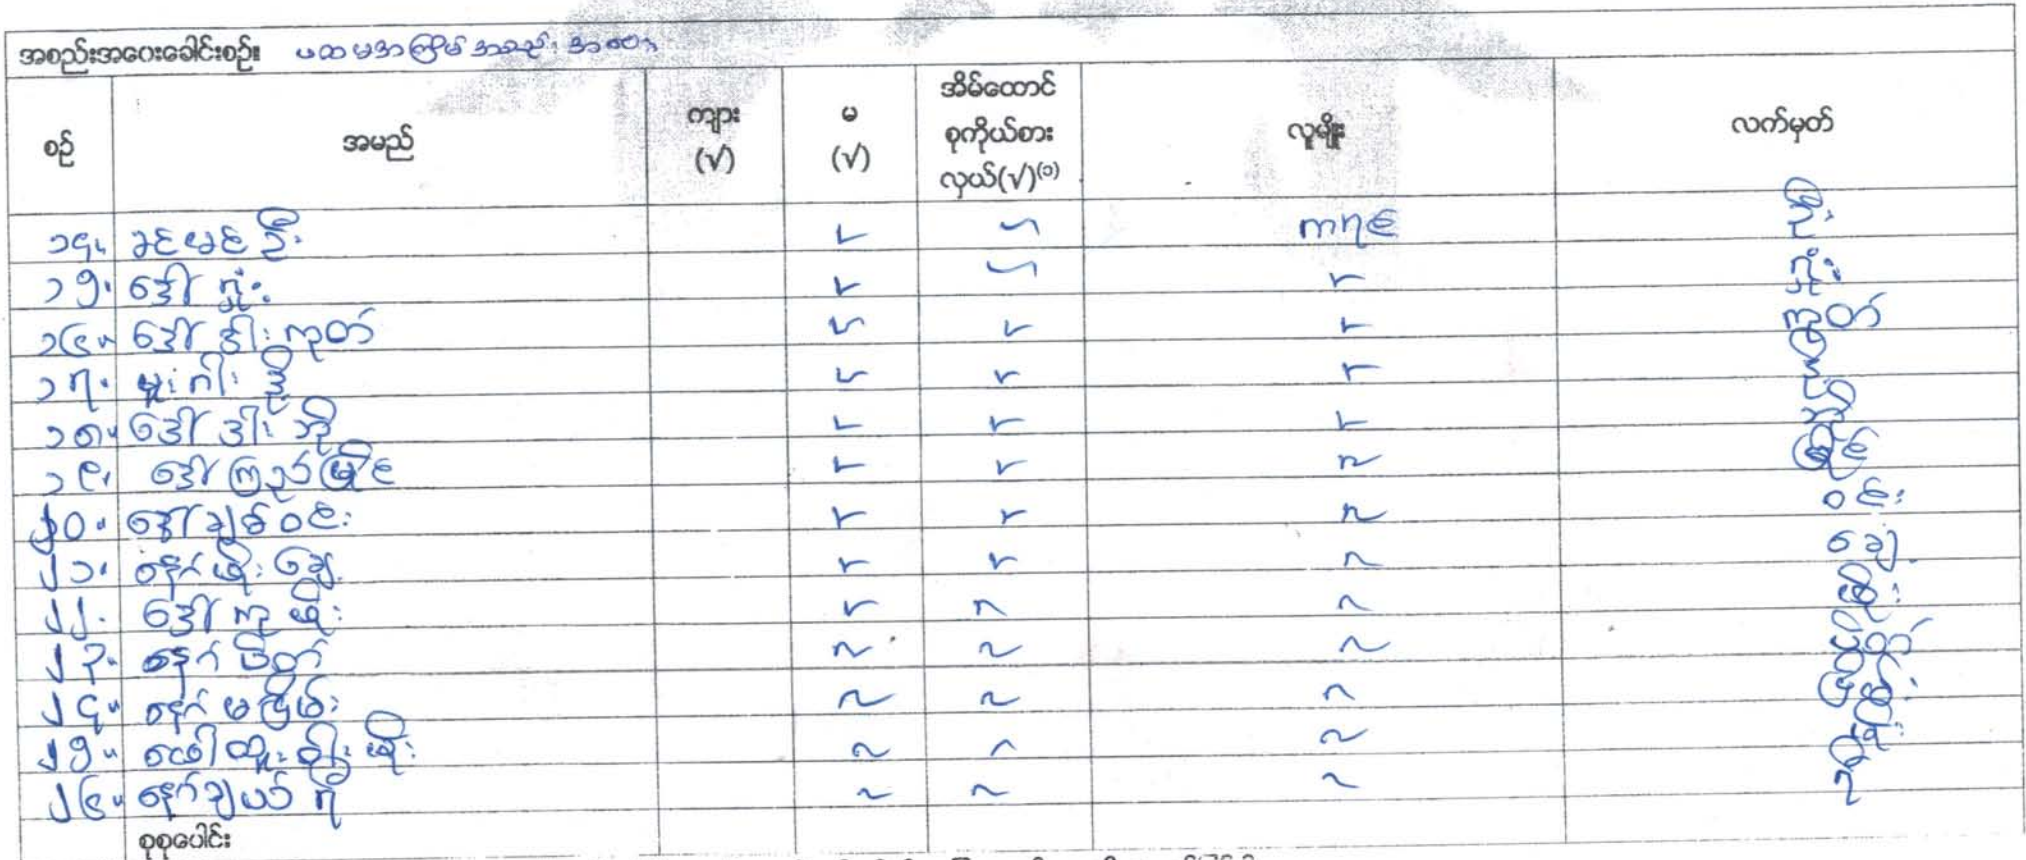 အစည်းအဝေးခေါင်းစဉ်း ပထမအကြိမ် အစည်းအဝေး
စဉ် အမည် ကျား (√) မ (√) အိမ်ထောင်စုကိုယ်စားလှယ်(√)⁽¹⁾ လူမျိုး လက်မှတ်
၁၄။ ခင်မင်ဦး ကရင် ဦး
၁၅။ ဒေါ်
၁၆။ ဒေါ်ဒါးကုတ် ကုတ်
၁၇။ မူးဂါး
၁၈။ ဒေါ်ဒါးဘို ဘို
၁၉။ ဒေါ်ကြည်မြိုင် မြိုင်
၂၀။ ဒေါ်ချစ်ဝင်း ဝင်း
၂၁။ နော်မိုးချေ ချေ
၂၂။ ဒေါ်ကူမိုး မိုး
၂၃။ နော်
၂၄။ နော်မငြိမ်း ငြိမ်း
၂၅။ ဖေါ်ထူးဝါးမိုး မိုး
၂၆။ နော်ချယ်ရီ ရီ
စုစုပေါင်း